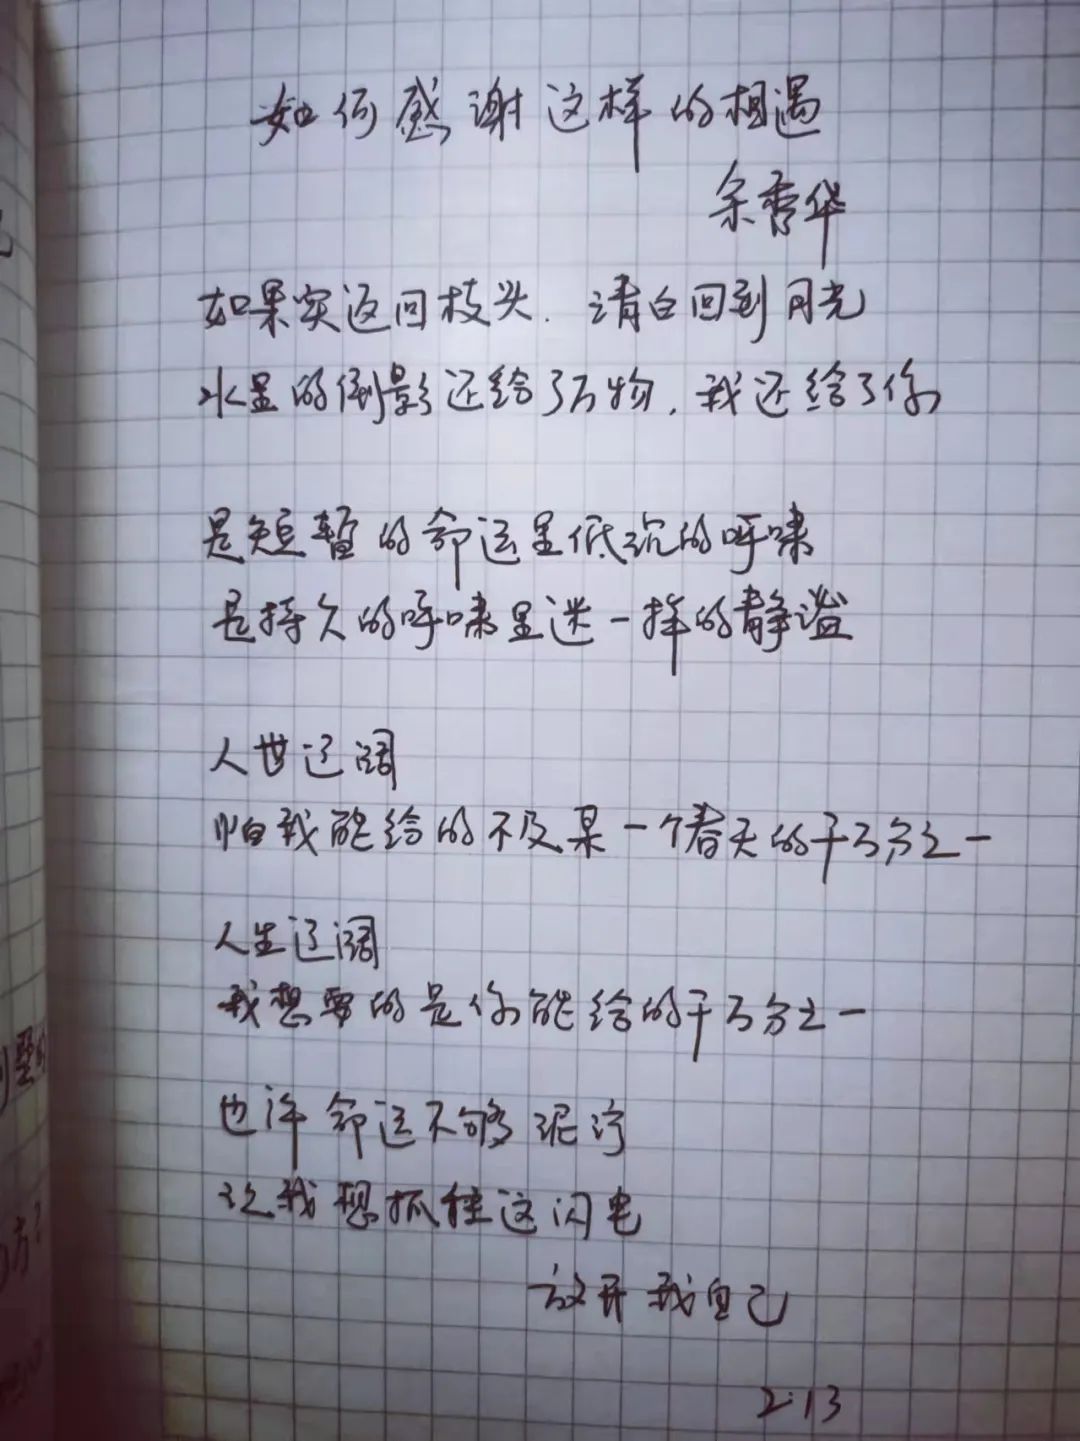 如何感谢这样的相遇
余秀华
如果实返回枝头.清白回到月光
水里的倒影还给了万物.我还给了你
是短暂的命运里低沉的呼啸
是持久的呼啸里迷一样的静谧
人世辽阔
怕我能给的不及某一个春天的千万分之一
人生辽阔
我想要的是你能给的千万分之一
也许命运不够泥泞
让我想抓住这闪电
放开我自己
2.13